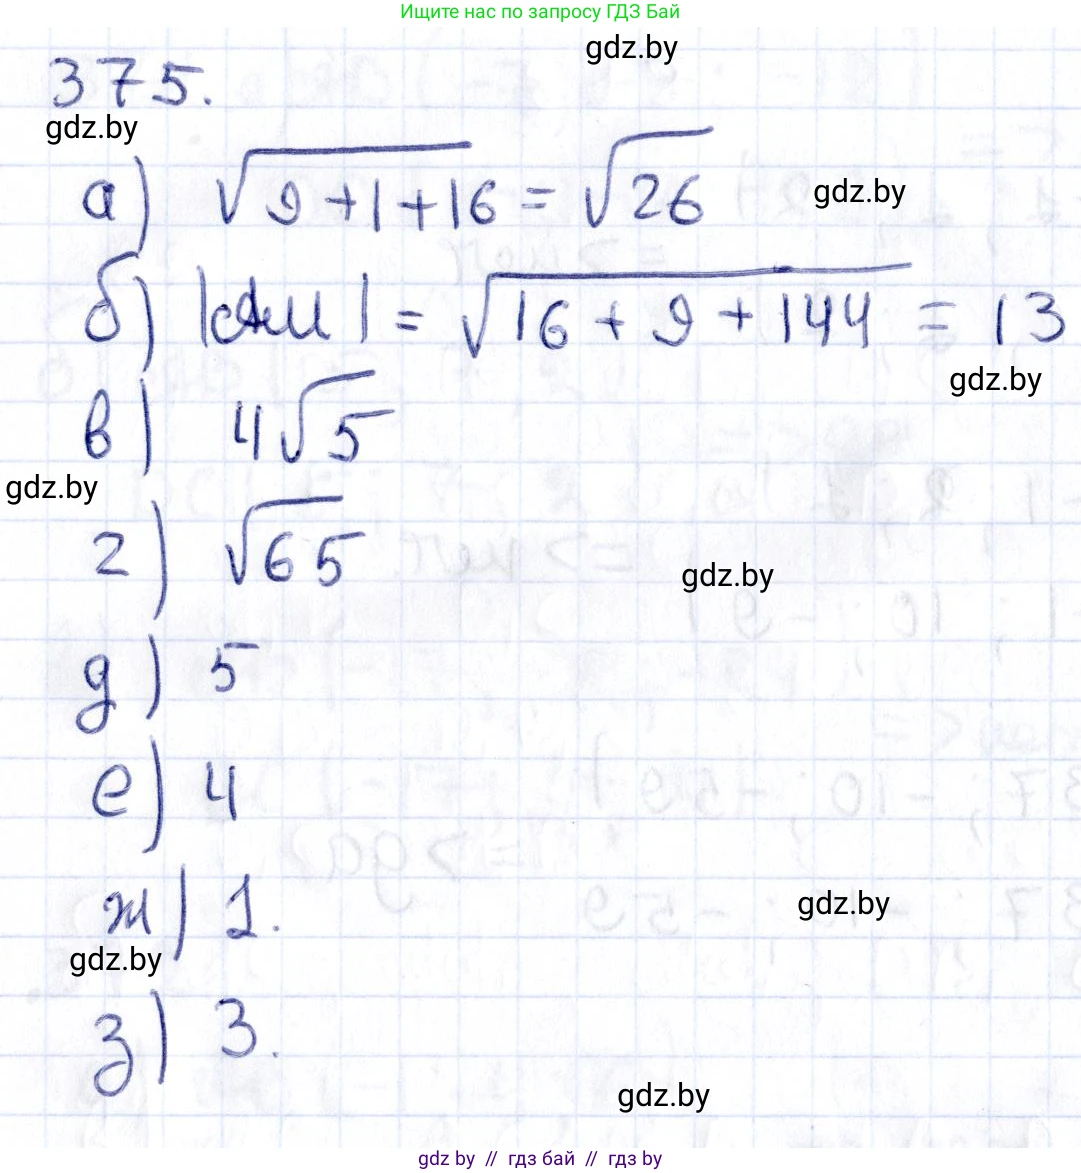 Ищите нас по запросу ГДЗ Бай
gdz.by
375.
gdz.by
а) √9+1+16 = √26
gdz.by
б) |AM| = √16 + 9 + 144 = 13
gdz.by
в) 4√5
gdz.by
г) √65
gdz.by
д) 5
е) 4
ж) 1.
gdz.by
gdz.by
з) 3.
gdz.by
gdz by // гдз бай // гдз by